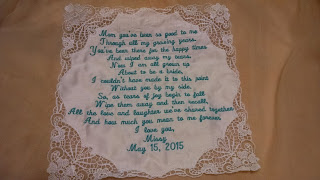 Mom you've been so good to me
Through all my growing years.
You've been there for the happy times
And wiped away my tears.
Now I am all grown up
About to be a bride,
I wouldn't have made it to this point
Without you by my side.
So, as tears of joy begin to fall
Wipe them away and then recall,
All the love and laughter we've shared together
And how much you mean to me forever.
I love you,
Missy
May 15, 2015